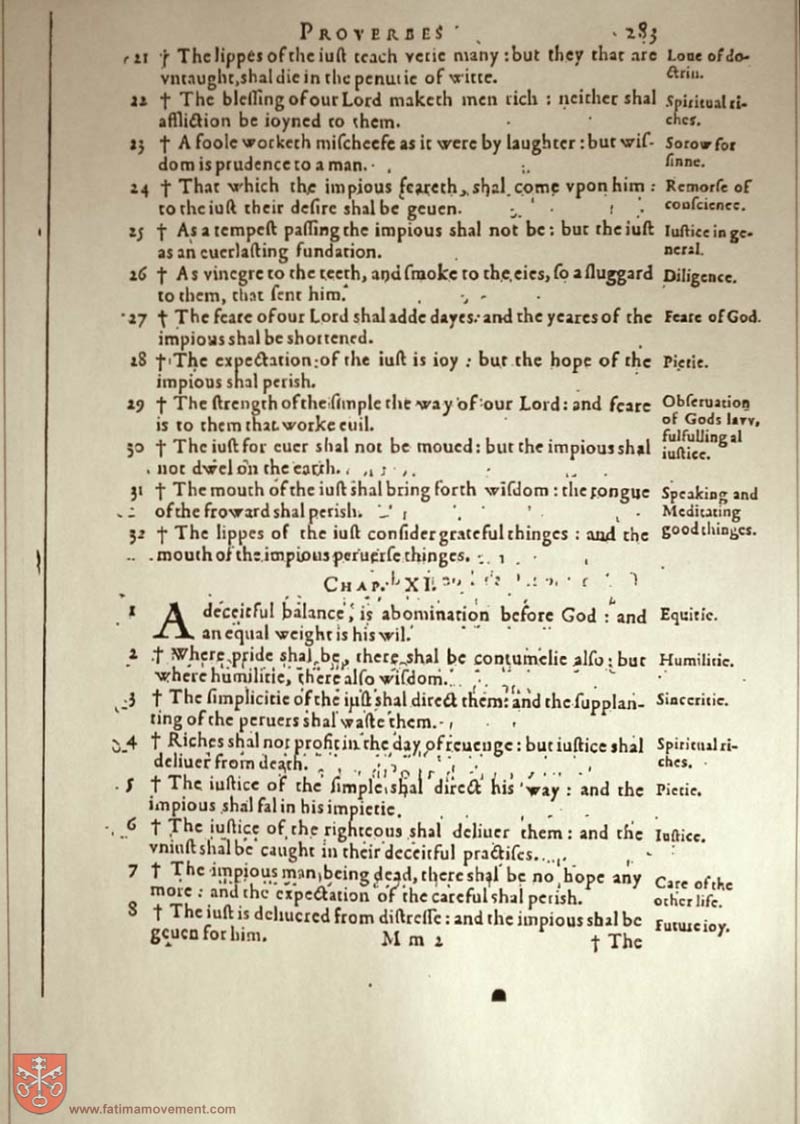 PROVERBES 283
21 † The lippes of the iuſt teach verie many : but they that are Loue of do-
vntaught, shal die in the penurie of witte. ctrin.
22 † The bleſſing of our Lord maketh men rich : neither shal Spiritual ri-
affliction be ioyned to them. ches.
23 † A foole worketh miſcheefe as it were by laughter : but wiſ- Sorow for
dom is prudence to a man. ſinne.
24 † That which the impious feareth, shal come vpon him : Remorſe of
to the iuſt their deſire shal be geuen. conſcience.
25 † As a tempeſt paſſing the impious shal not be : but the iuſt Iuſtice in ge-
as an euerlaſting fundation. neral.
26 † As vinegre to the teeth, and ſmoke to the eies, ſo a ſluggard Diligence.
to them, that ſent him.
27 † The feare of our Lord shal adde dayes : and the yeares of the Feare of God.
impious shal be shortened.
28 † The expectation of the iuſt is ioy : but the hope of the Pietie.
impious shal perish.
29 † The ſtrength of the ſimple the way of our Lord : and feare Obſeruation
is to them that worke euil. of Gods law,
30 † The iuſt for euer shal not be moued : but the impious shal fulfulling al
not dwel on the earth. iuſtice.
31 † The mouth of the iuſt shal bring forth wiſdom : the tongue Speaking and
of the froward shal perish. Meditating
32 † The lippes of the iuſt conſider grateful thinges : and the good thinges.
mouth of the impious peruerſe thinges.
CHAP. XI.
1 A deceitful balance, is abomination before God : and Equitie.
an equal weight is his wil.
2 † Where pride shal be, there shal be contumelie alſo : but Humilitie.
where humilitie, there alſo wiſdom.
3 † The ſimplicitie of the iuſt shal direct them : and the ſupplan- Sinceritie.
ting of the peruers shal waſte them.
4 † Riches shal not profit in the day of reuenge : but iuſtice shal Spiritual ri-
deliuer from death. ches.
5 † The iuſtice of the ſimple shal direct his way : and the Pietie.
impious shal fal in his impietie.
6 † The iuſtice of the righteous shal deliuer them : and the Iuſtice.
vniuſt shal be caught in their deceitful practiſes.
7 † The impious man being dead, there shal be no hope any Care of the
more : and the expectation of the careful shal perish. other life.
8 † The iuſt is deliuered from diſtreſſe : and the impious shal be Future ioy.
geuen for him. M m 2 † The
www.fatimamovement.com